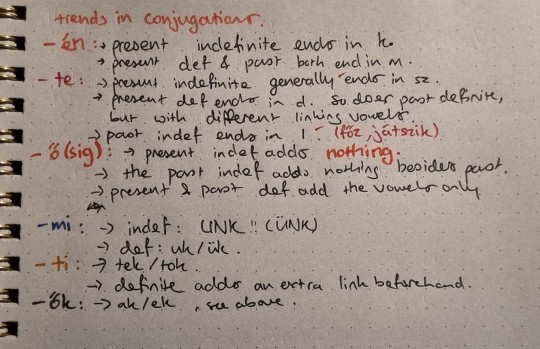 trends in conjugations.
-én: → present indefinite ends in k.
→ present def & past both end in m.
-te: → present indefinite generally ends in sz.
→ present def ends in d. so does past definite,
but with different linking vowels.
→ past indef ends in l - (főz, játszik)
-ő(sig): → present indef adds nothing.
→ the past indef adds nothing besides past.
→ present & past def add the vowels only
-mi: → indef: UNK!! (ÜNK)
→ def: uk/ük.
-ti: → tek/tok.
→ definite adds an extra link beforehand.
-ők: → ak/ek, see above.